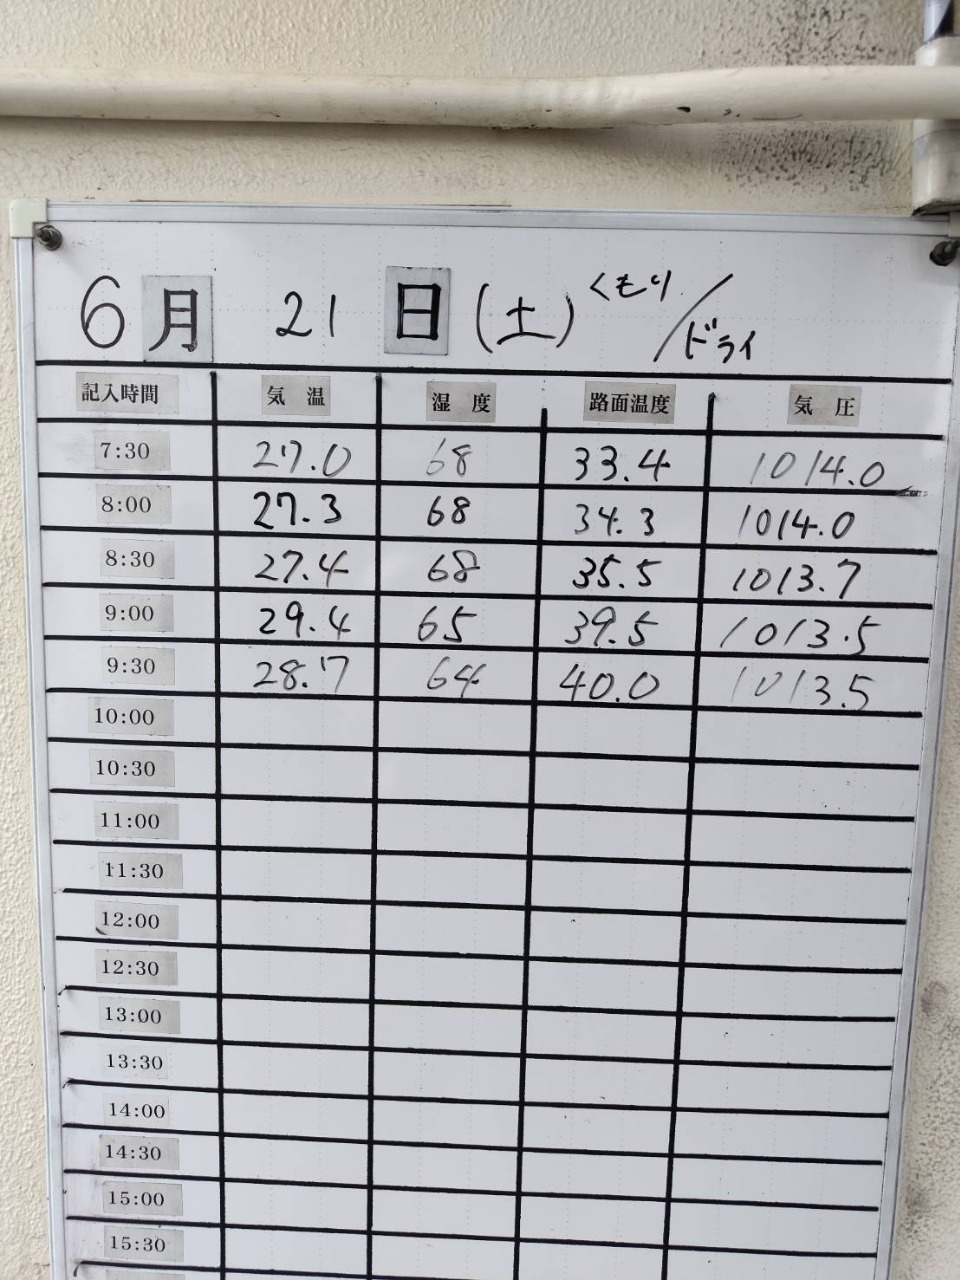 6月 21日(土) くもり/ドライ
記入時間 気温 湿度 路面温度 気圧
7:30 27.0 68 33.4 1014.0
8:00 27.3 68 34.3 1014.0
8:30 27.4 68 35.5 1013.7
9:00 29.4 65 39.5 1013.5
9:30 28.7 64 40.0 1013.5
10:00
10:30
11:00
11:30
12:00
12:30
13:00
13:30
14:00
14:30
15:00
15:30